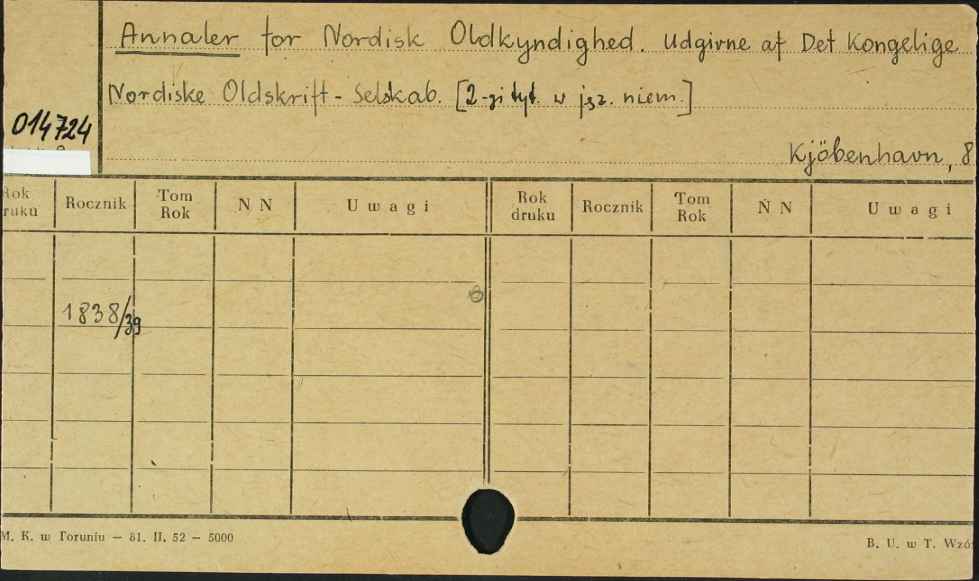 Annaler for Nordisk Oldkyndighed. Udgivne af Det Kongelige
Nordiske Oldskrift-Selskab. [2-gi tyt. w jęz. niem.]
014724
Kjöbenhavn, 8
Rok druku Rocznik Tom Rok N N Uwagi Rok druku Rocznik Tom Rok N N Uwagi
1838/39
M. K. w Toruniu — 81. II. 52 — 5000
B. U. w T. Wzó